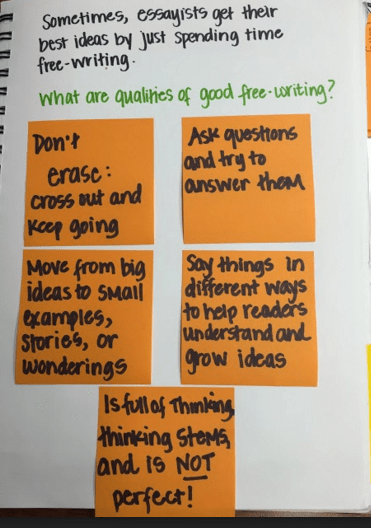 Sometimes, essayists get their
best ideas by just spending time
free-writing.
What are qualities of good free-writing?
Don't
erase:
cross out and
keep going
Ask questions
and try to
answer them
Move from big
ideas to small
examples,
stories, or
wonderings
Say things in
different ways
to help readers
understand and
grow ideas
Is full of thinking,
thinking stems,
and is NOT
perfect!